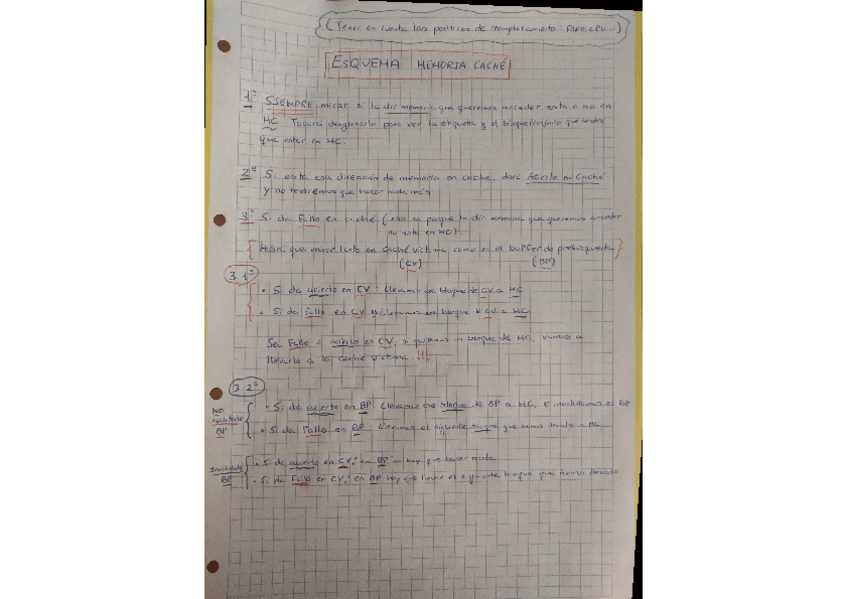 (Tener en cuenta las políticas de reemplazamiento: FIFO, LRU...)
ESQUEMA MEMORIA CACHÉ
1º SIEMPRE mirar si la dir memoria que queremos acceder esta o no en
MC. Tocará desglosarlo para ver la etiqueta y el bloque/conjunto que
que estar en MC.
2º Si esta esa dirección de memoria en caché, dará Acierto en Caché
y no tendremos que hacer nada más
3º Si da Fallo en caché (eso es porque la dir memoria que queremos acceder
no está en MC).
Habrá que mirar tanto en caché víctima como en el buffer de prebúsqueda
(CV) (BP)
3.1º
• Si da acierto en CV: Llevamos ese bloque de CV a MC
• Si da fallo en CV: bloque de CV a MC.
Sea Fallo o acierto en CV, si quitamos un bloque de MC, vamos a
llevarlo a la caché víctima !!!
3.2º
NO
BP
• Si da acierto en BP: Llevamos ese bloque de BP a MC, e invalidamos el BP
• Si da Fallo en BP: Llevamos el siguiente bloque que hemos llevado a MC
BP
• Si da acierto en CV: en BP no hay que hacer nada
• Si da Fallo en CV: en BP hay que llevar el siguiente bloque que hemos llevado